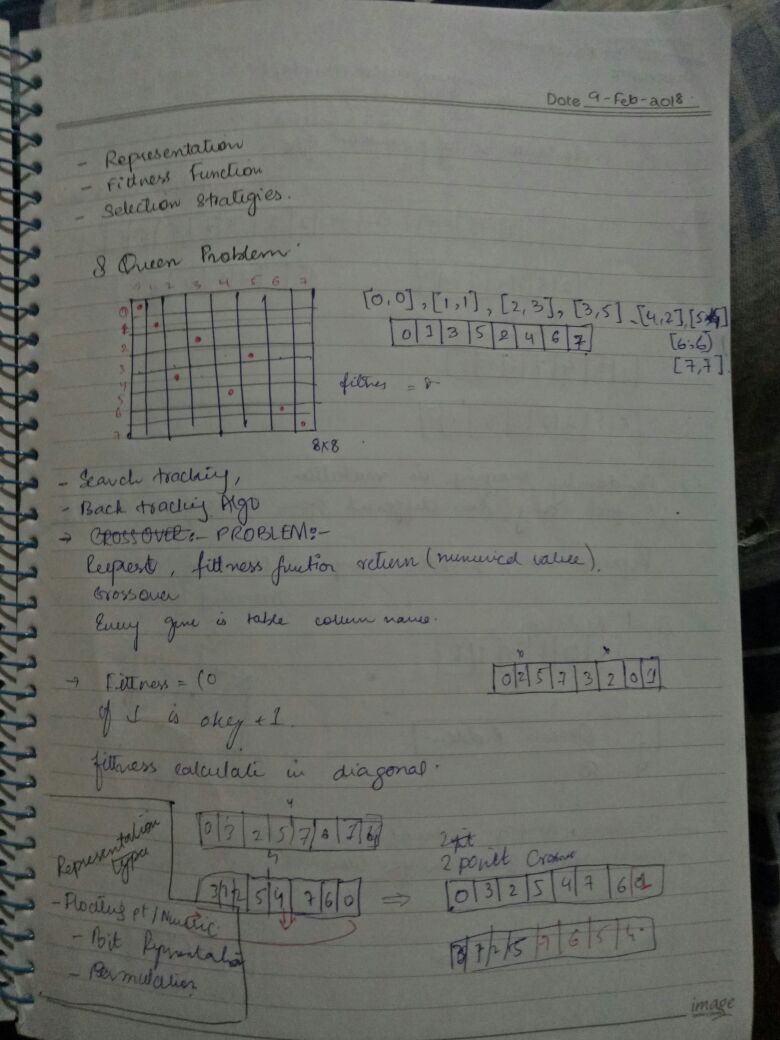 Date 9-Feb-2018.
- Representation
- Fittness Function
- Selection Strategies.
8 Queen Problem:
0 1 2 3 4 5 6 7
0
1
2
3
4
5
6
7
8x8
[0,0], [1,1], [2,3], [3,5] [4,2], [5,4]
[6,6)
[7,7].
0 1 3 5 2 4 6 7
fittnes = 8
- Search tracking,
- Back tracking Algo
→ CROSSOVER:- PROBLEM:-
fittness function return (numerical value).
Crossover
Every gene is table column name.
→ Fittness = 10
if 1 is okey +1.
0 2 5 7 3 2 0 1
fittness calculate in diagonal.
Representation
type
- Floating pt/Numeric
- Bit Representation
- Permutation
4
0 3 2 5 7 8 1 6
4
3 1 2 5 4 7 6 0 ⇒
2 point Cross
0 3 2 5 4 7 6 1
3 1 2 5 7 6 5 4
image